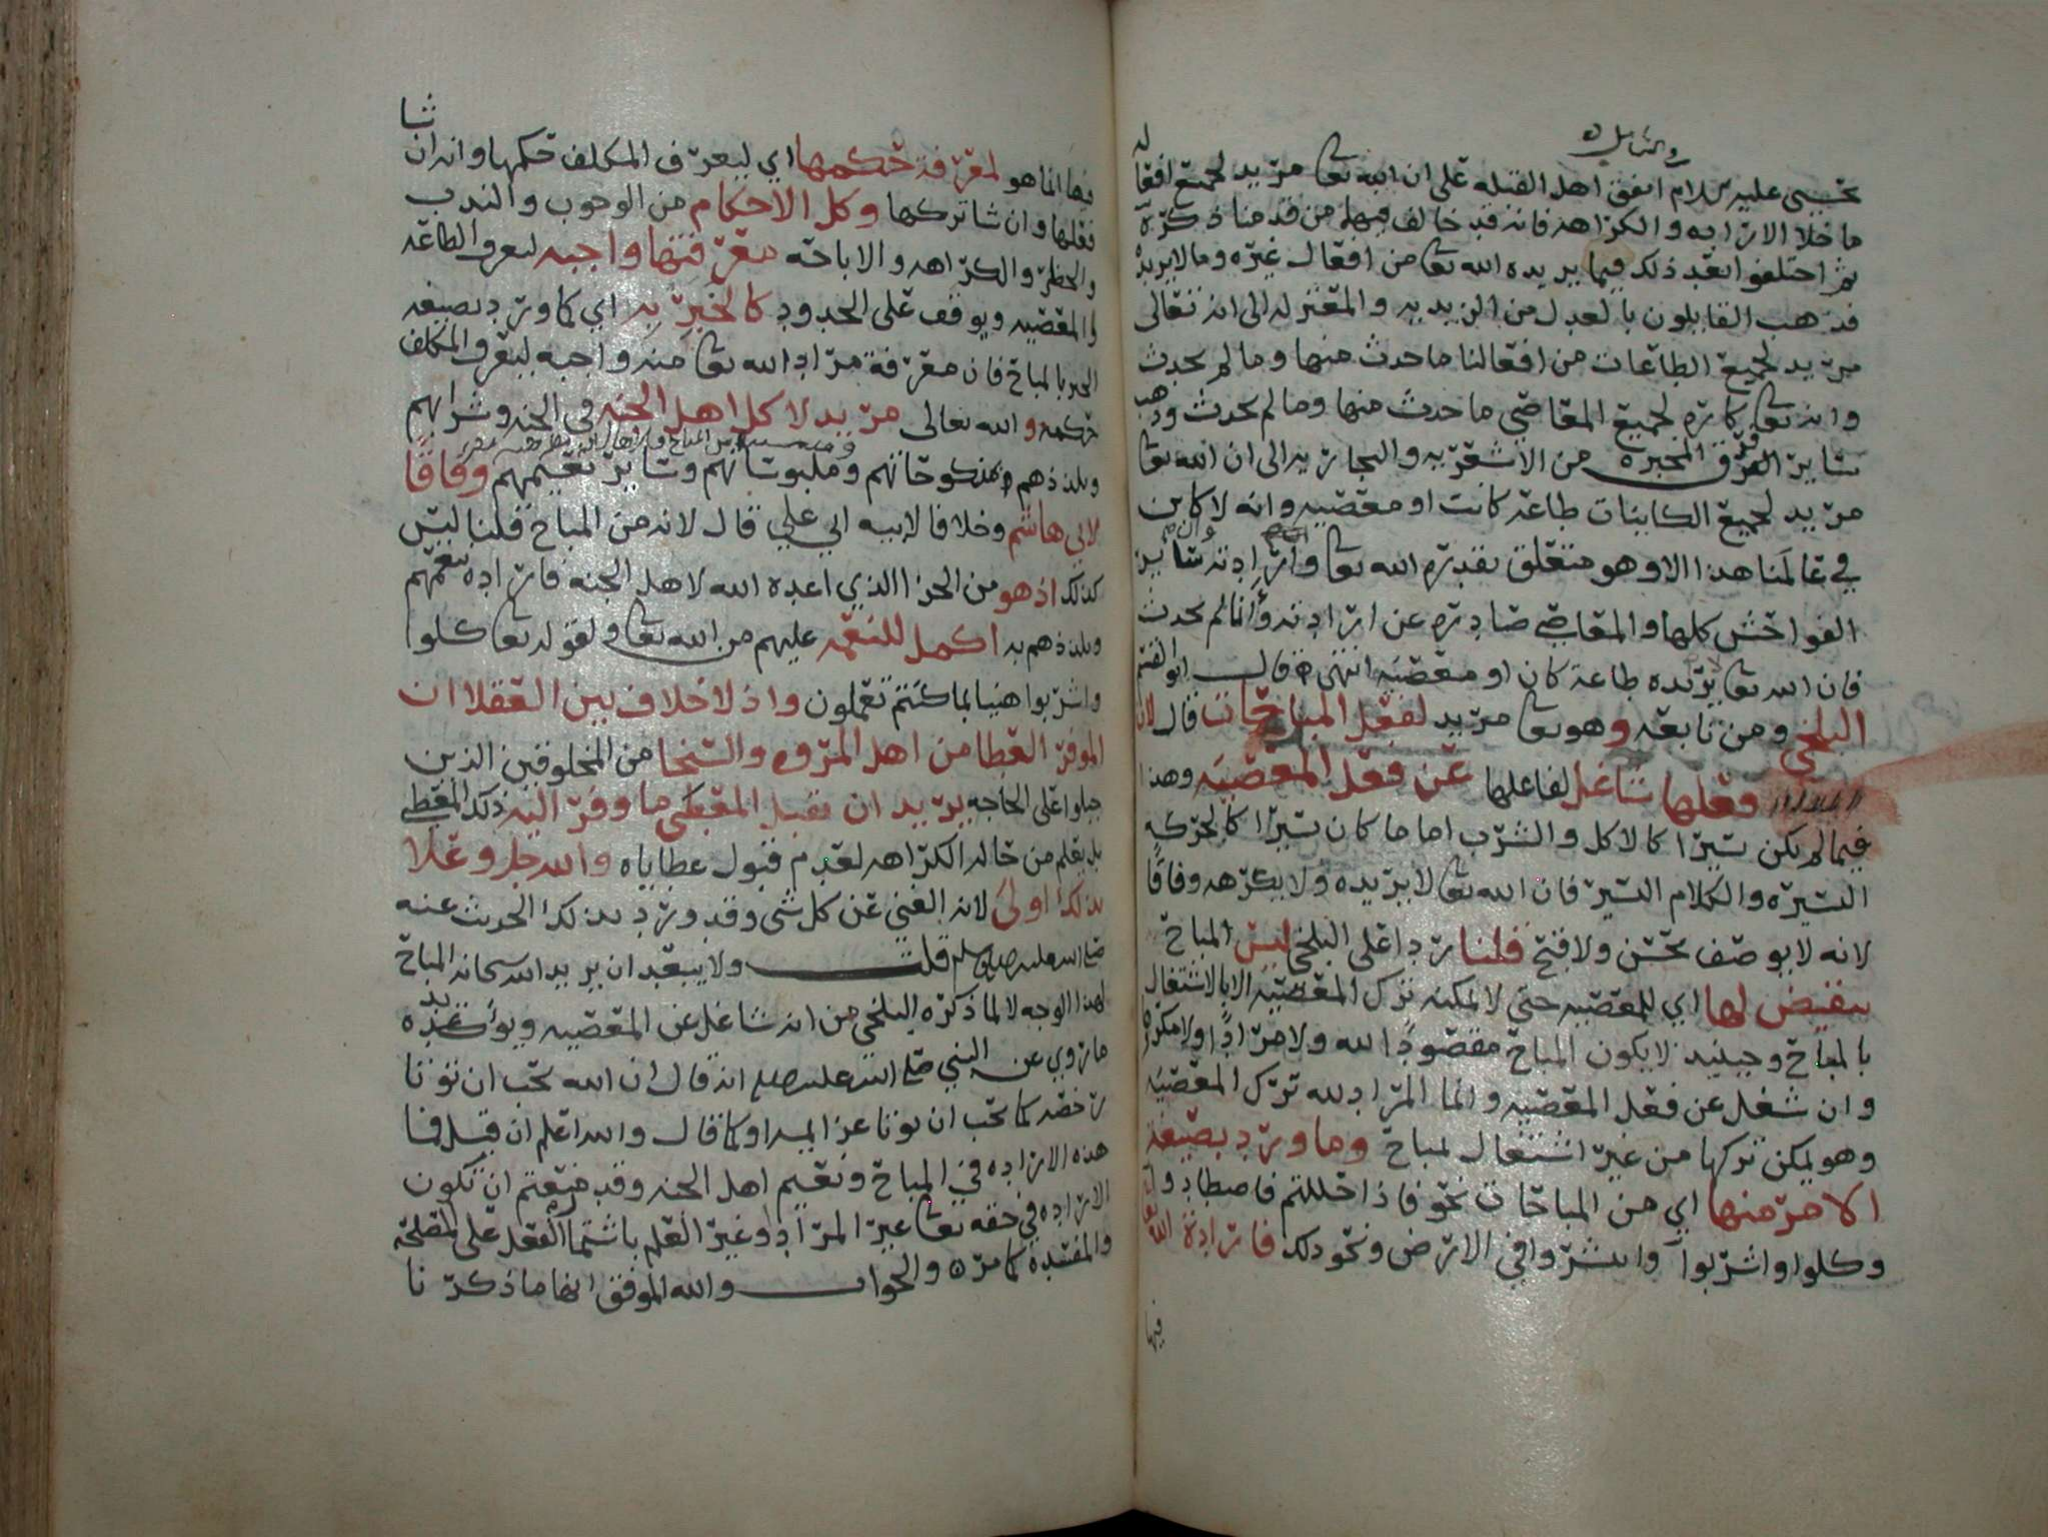 في الشامل
يحيى عليه السلام اتفق اهل القبله على ان الله تعا مريد لجميع افعا
له
ما خلا الاراده والكراهه فانه قد خالف فيها من قدمنا ذكره
ثم اختلفوا بعد ذلك فيما يريده الله تعا من افعال غيره وما لا يريده
فذهب القايلون بالعدل من الزيديه والمعتزله الى انه تعالى
مريد لجميع الطاعات من افعالنا ما حدث منها وما لم يحدث
وانه تعا كاره لجميع المعاصي ما حدث منها وما لم يحدث وذهب
ساير الفرق المجبره من الاشعريه والنجاريه الى ان الله تعا
مريد لجميع الكاينات طاعه كانت او معصيه وانه لا كاين
في عالمنا هذا الا وهو متعلق بقدره الله تعا وارادته وان ساير
الفواحش كلها والمعاصي صادره عن ارادته وانما لم يحدث
فان الله تعا لا يريده طاعه كان او معصيه انتهى قال ابو القسم
البلخي ومن تابعه وهو تعا مريد لفعل المباحات قال لان
فعلها شاغل لفاعلها عن فعل المعصيه وهذا
فيما لم يكن يسيرا كالاكل والشرب اما ما كان يسيرا كالحركه
اليسيره والكلام اليسير فان الله تعا لا يريده ولا يكرهه وفاقا
لانه لا يوصف بحسن ولا قبح قلنا ردا على البلخي ليس المباح
بنقيض لها اي للمعصيه حتى لا يمكنه ترك المعصيه الا بالاشتغال
بالمباح وحينيذ لا يكون المباح مقصودا لله ولا مرادا ولا مكروها
وان شغل عن فعل المعصيه وانما المراد لله ترك المعصيه
وهو يمكن تركها من غير اشتغال بمباح وما ورد بصيغه
الامر منها اي من المباحات نحو فاذا حللتم فاصطادوا
وكلوا واشربوا وانتشروا في الارض ونحو ذلك فارادة الله تعا
فيها
ثنا
فيها انما هو لمعرفة حكمها اي ليعرف المكلف حكمها وانه ان
فعلها وان شا تركها وكل الاحكام من الوجوب والندب
والحظر والكراهه والاباحه معرفتها واجبه لتعرف الطاعه
والمعصيه ويوقف على الحدود كالخبر به اي كما ورد بصيغه
الخبر بالمباح فان معرفة مراد الله تعا منه واجبه ليعرف المكلف
حكمه والله تعالى مريد لاكل اهل الجنه في الجنه وشرابهم
وتلذذهم بمنكوحاتهم وملبوساتهم وساير نعيمهم وفاقا
لابي هاشم وخلافا لابيه ابي علي قال لانه من المباح قلنا ليس
كذلك اذ هو من الجزا الذي اعده الله لاهل الجنه فاراده تنعمهم
وتلذذهم به اكمل للنعمه عليهم من الله تعا ولقوله تعا كلوا
واشربوا هنيا بما كنتم تعملون واذ لا خلاف بين العقلا ان
الموفر العطا من اهل المروه والسخا من المخلوقين الذين
جبلوا على الحاجه يريد ان يقبل المعطى ما وفر اليه ذلك المعطي
بل يعلم من حاله الكراهه لعدم قبول عطاياه والله جل وعلا
بذلك اولى لانه الغني عن كل شي وقد ورد بذلك الحديث عنه
صلى الله عليه وعلى اله وسلم قلت ولا يبعد ان يريد الله سبحانه المباح
لهذا الوجه لا لما ذكره البلخي من انه شاغل عن المعصيه ويؤكده
ما روي عن النبي صلى الله عليه انه قال ان الله يحب ان توتا
رخصه كما يحب ان توتا عزايمه او كما قال والله اعلم ان قيل فما
هذه الاراده في المباح ونعيم اهل الجنه وقد منعتم ان تكون
الاراده في حقه تعا غير المراد وغير العلم باشتمال الفعل على المصلحه
والمفسده كما مر والجواب والله الموفق انها ما ذكرنا